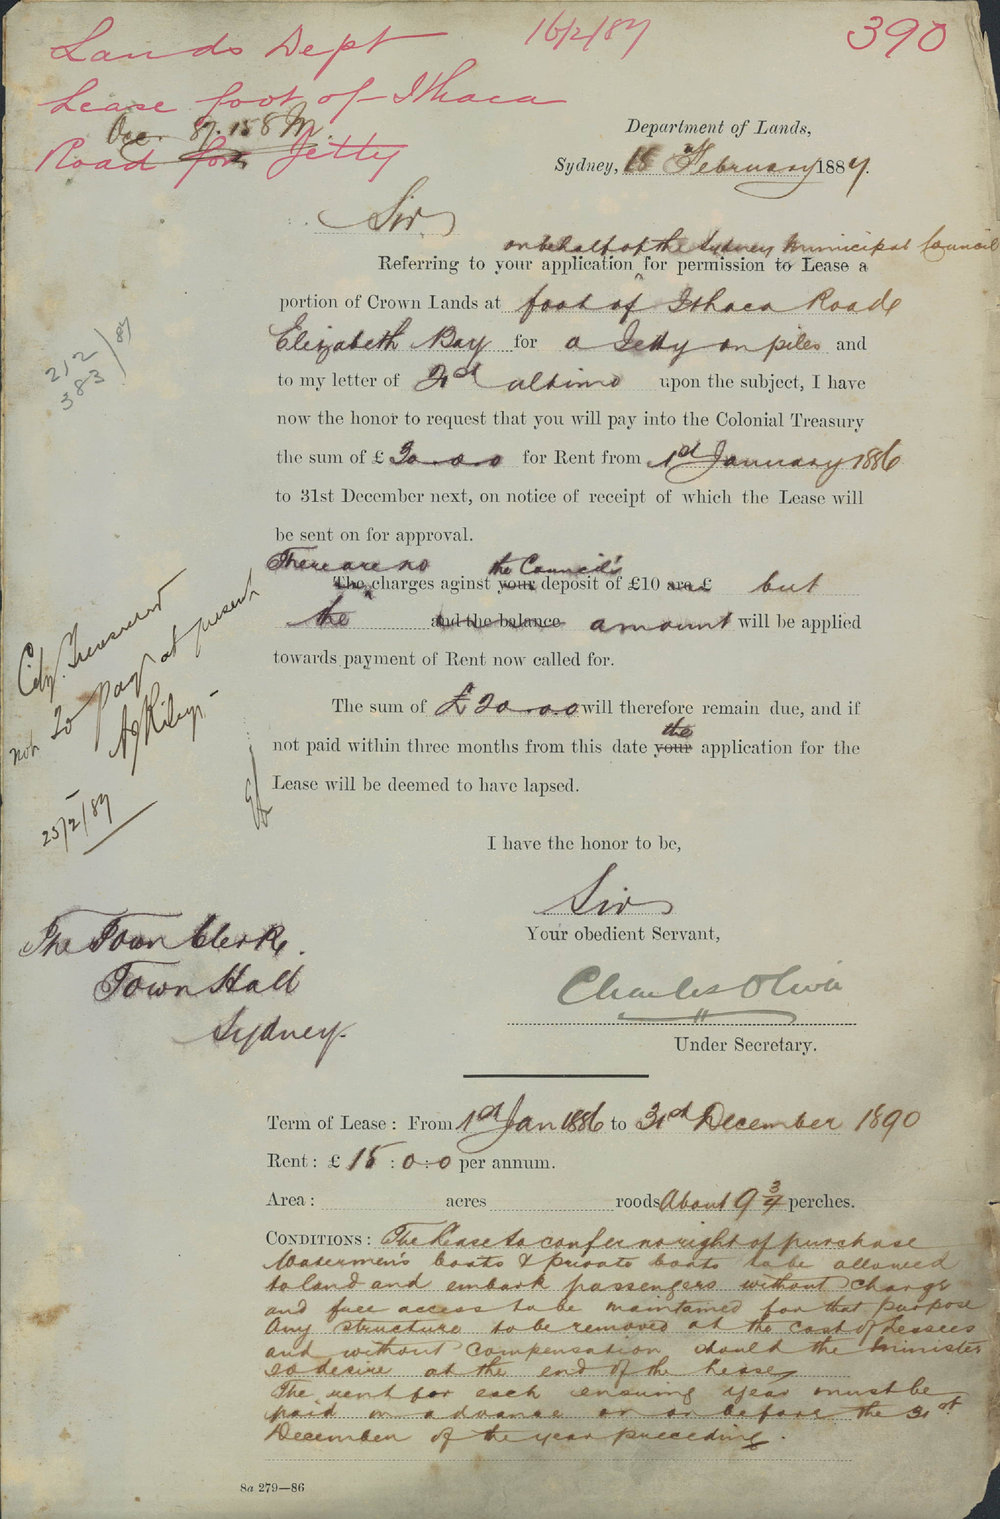 Lands Dept
16/2/87
390
Lease foot of Ithaca
Road for Jetty
87.158 M
Department of Lands,
Sydney, 15 February 1887.
Sir,
on behalf of the Sydney Municipal Council
Referring to your application for permission to Lease a
portion of Crown Lands at foot of Ithaca Road
Elizabeth Bay for a Jetty on piles and
to my letter of ultimo upon the subject, I have
now the honor to request that you will pay into the Colonial Treasury
the sum of £30..0..0 for Rent from 1st January 1886
to 31st December next, on notice of receipt of which the Lease will
be sent on for approval.
There are no the Council's
The charges aginst your deposit of £10 are £ but
the and the balance amount will be applied
towards payment of Rent now called for.
The sum of £20..0..0 will therefore remain due, and if
the
not paid within three months from this date your application for the
Lease will be deemed to have lapsed.
212
383 / 87
City Treasurer
not to pay at present
25/2/87
I have the honor to be,
Sir
Your obedient Servant,
Charles Oliver
Under Secretary.
The Town Clerk.
Town Hall
Sydney.
Term of Lease: From 1st Jan 1886 to 31st December 1890
Rent: £15:0:0 per annum.
Area: acres roods About 9 3/4 perches.
CONDITIONS: The Lease to confer no right of purchase
Watermen's boats & private boats to be allowed
to land and embark passengers without charge
and free access to be maintained for that purpose
Any structure to be removed at the cost of Lessees
and without compensation should the Minister
so desire at the end of the lease
The rent for each ensuing year must be
paid in advance on or before the 31st
December of the year preceding.
8a 279—86